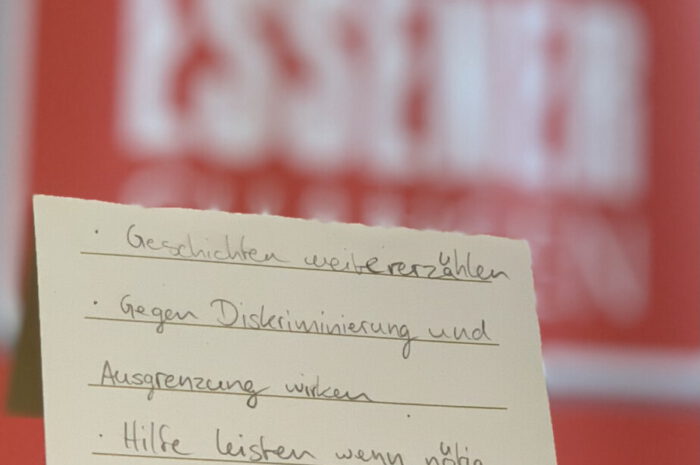 ESSENER
· Geschichten weitererzählen
· Gegen Diskriminierung und
Ausgrenzung wirken
· Hilfe leisten wenn nötig